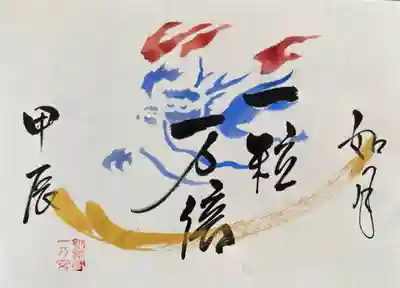 如月
一粒
万倍
甲辰